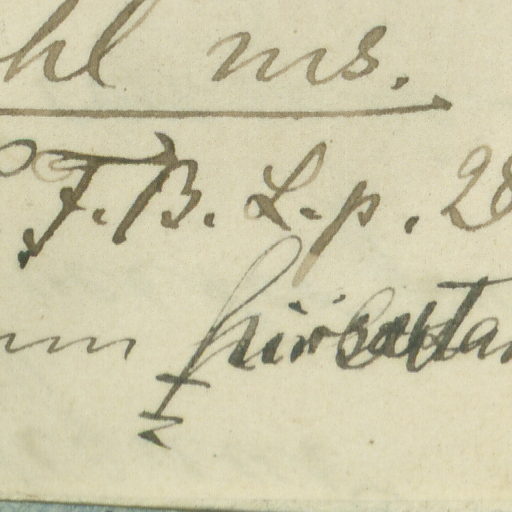 hl ms.
F. B. L. p. 28
um